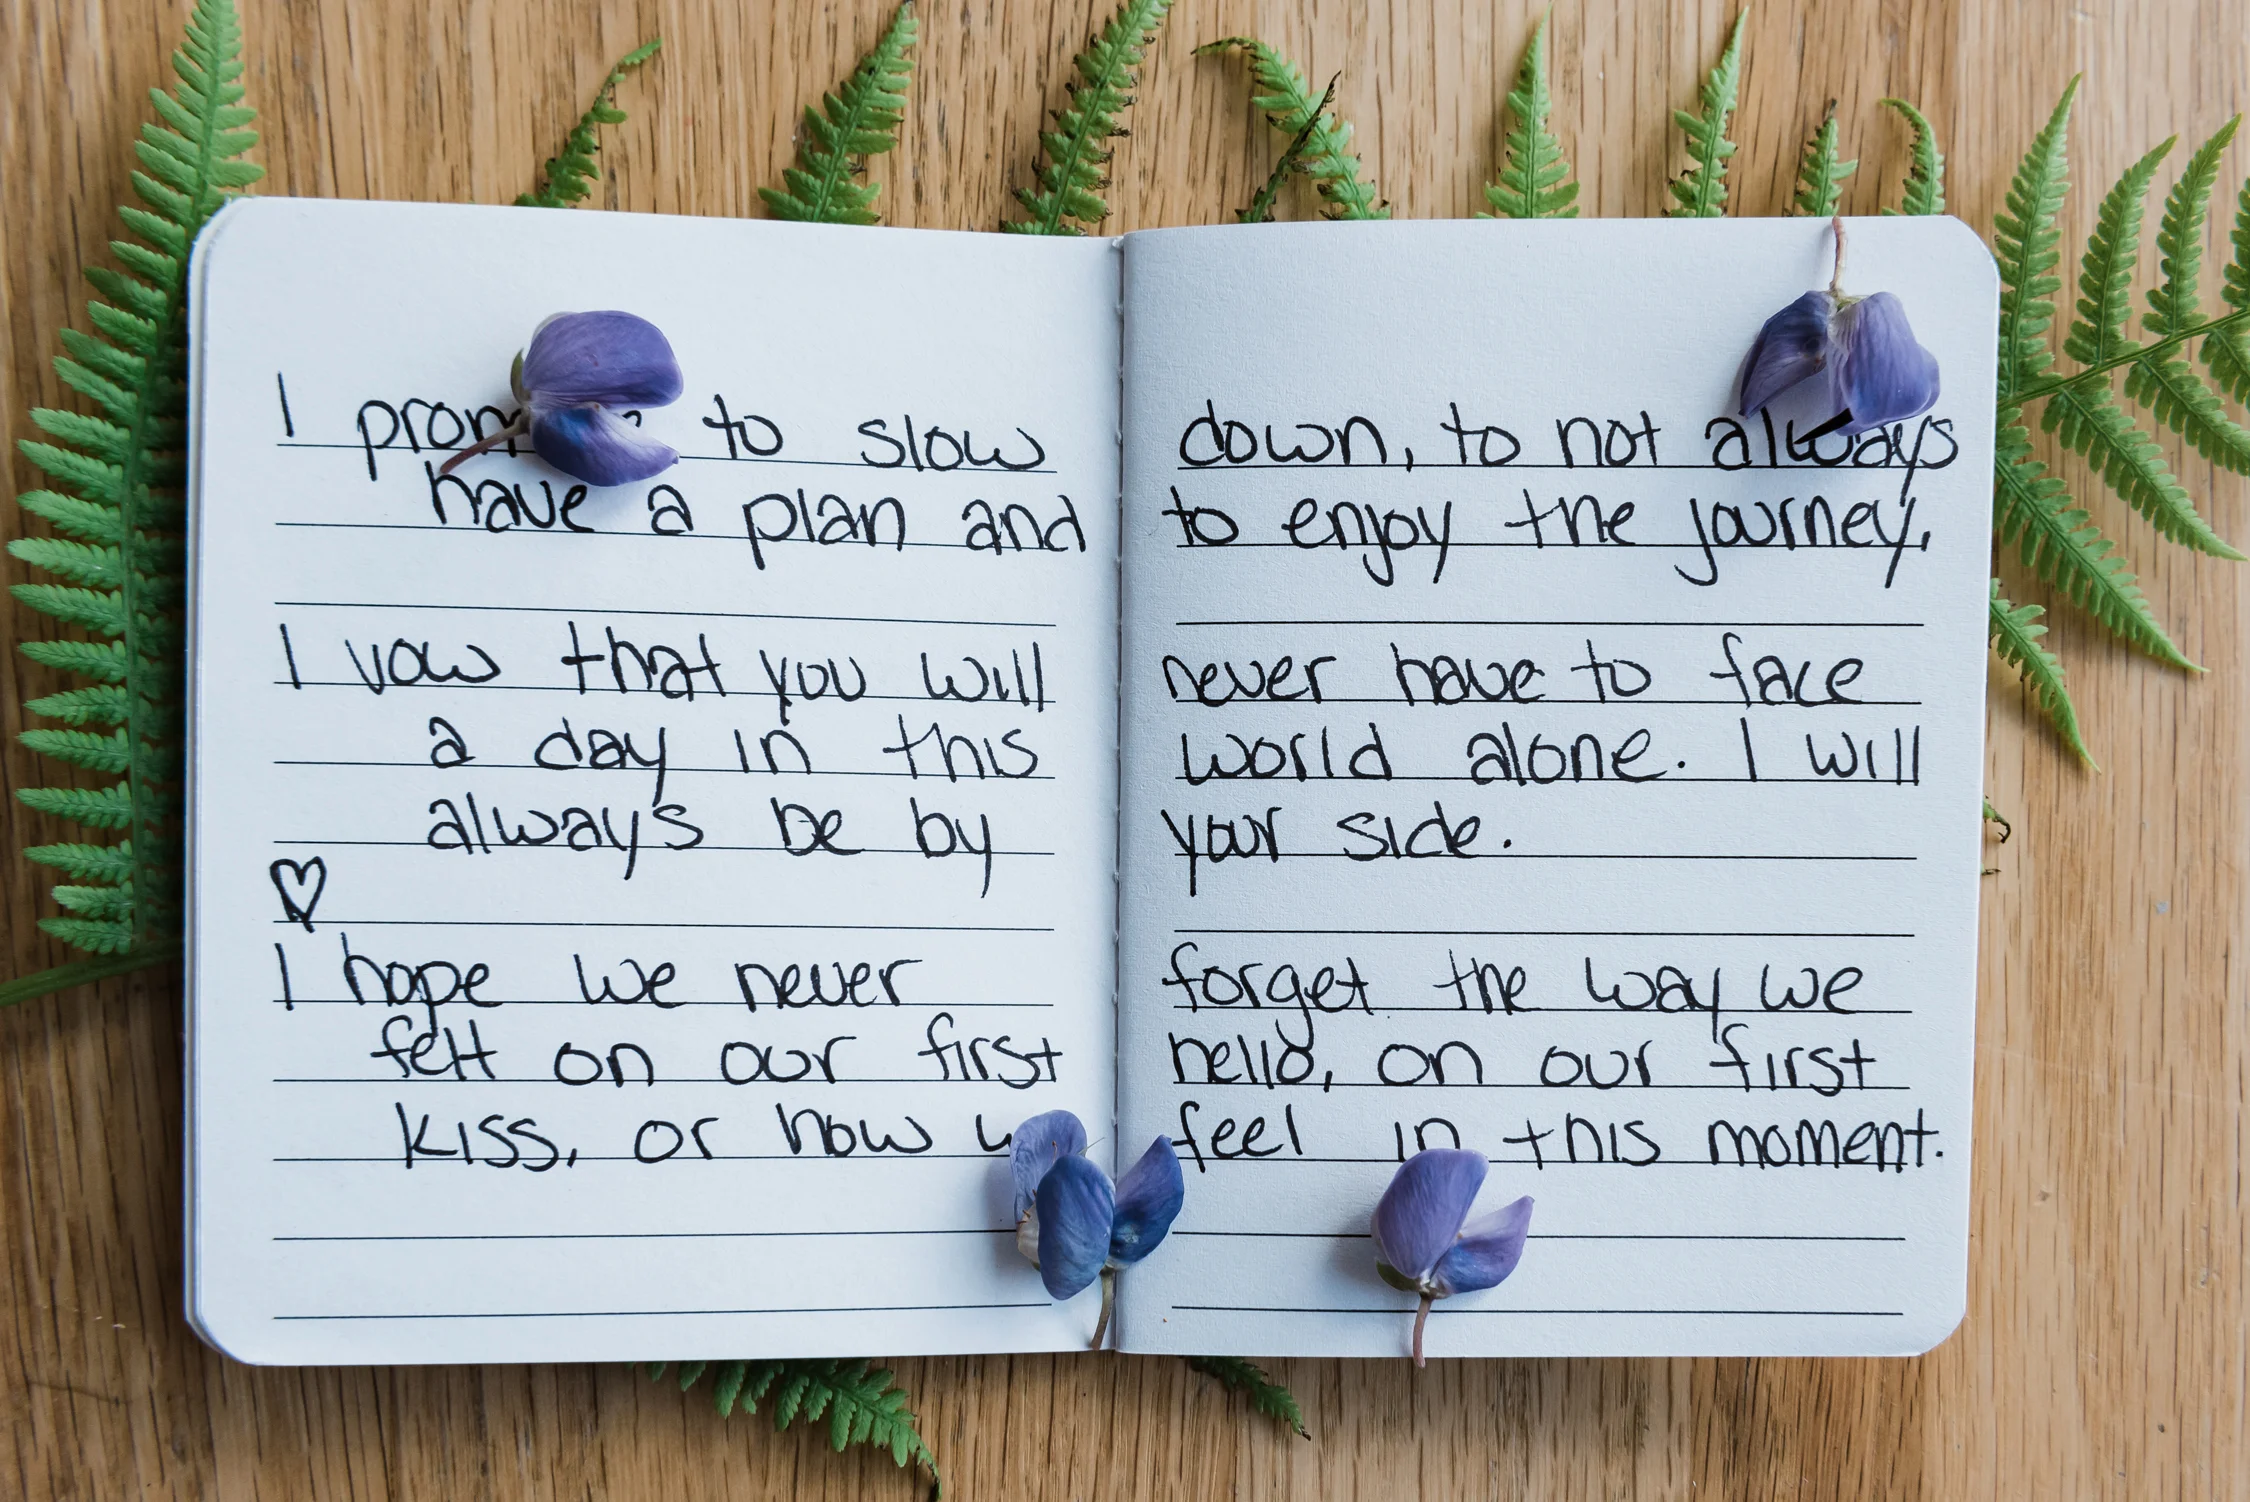 I to slow down, to not always
have a plan and to enjoy the journey.
I vow that you will never have to face
a day in this world alone. I will
always be by your side.
I hope we never forget the way we
felt on our first hello, on our first
kiss, or how feel in this moment.